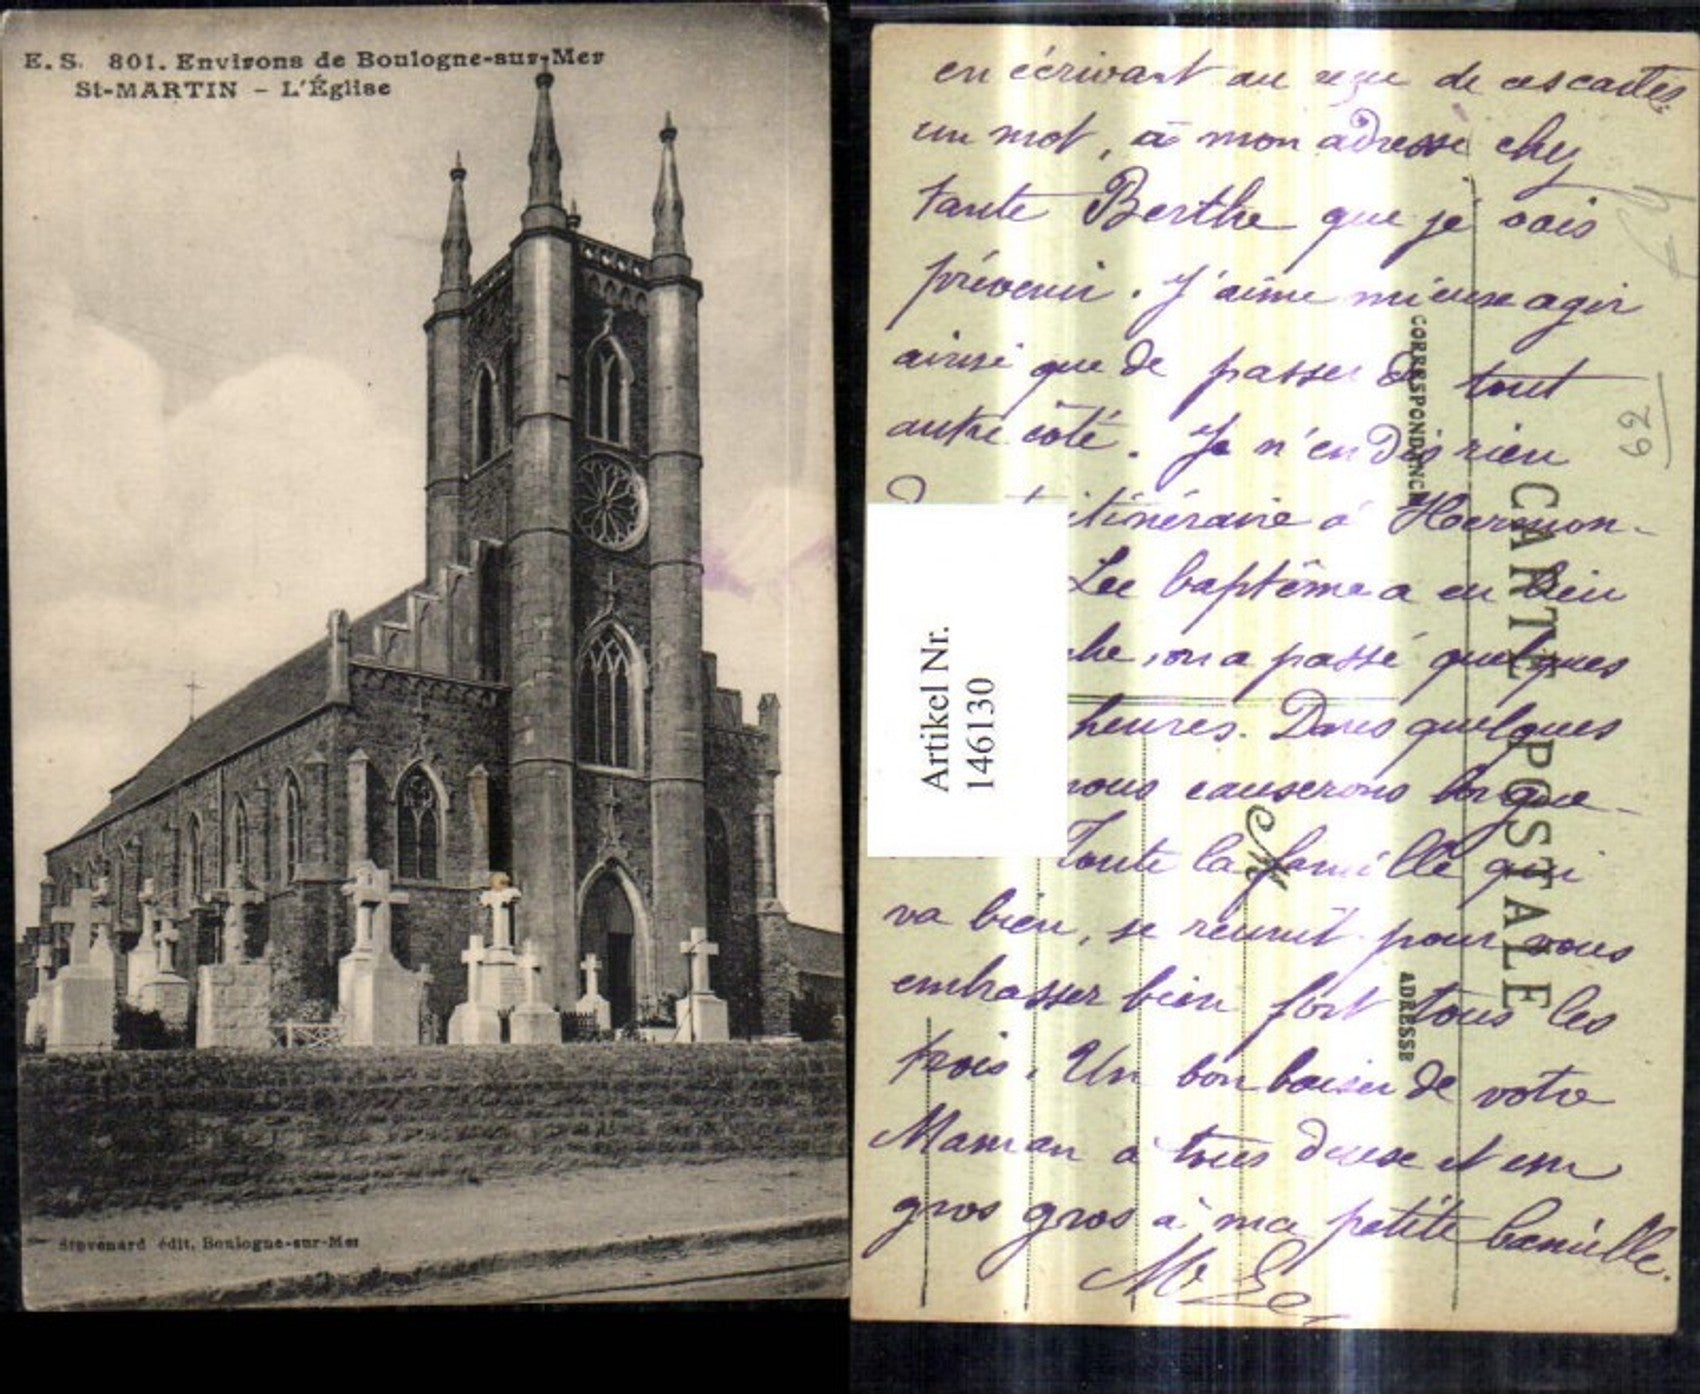 E. S. 801. Environs de Boulogne-sur-Mer
St-MARTIN - L'Église
Stevenard édit. Boulogne-sur-Mer
en écrivant au reçu de ces cartes
un mot, à mon adresse chez
tante Berthe que je vais
prévenir. J'aime mieux agir
ainsi que de passer de tout
autre côté. Je n'en dis rien
itinéraire à Hermon-
Le baptême a eu lieu
che, on a passé quelques
heures. Dans quelques
nous causerons longue-
Toute la famille qui
va bien, se réunit pour vous
embrasser bien fort tous les
trois. Un bon baiser de votre
Maman à tous deux et un
gros gros à ma petite Camille.
CARTE POSTALE
CORRESPONDANCE
ADRESSE
62
Artikel Nr.
146130